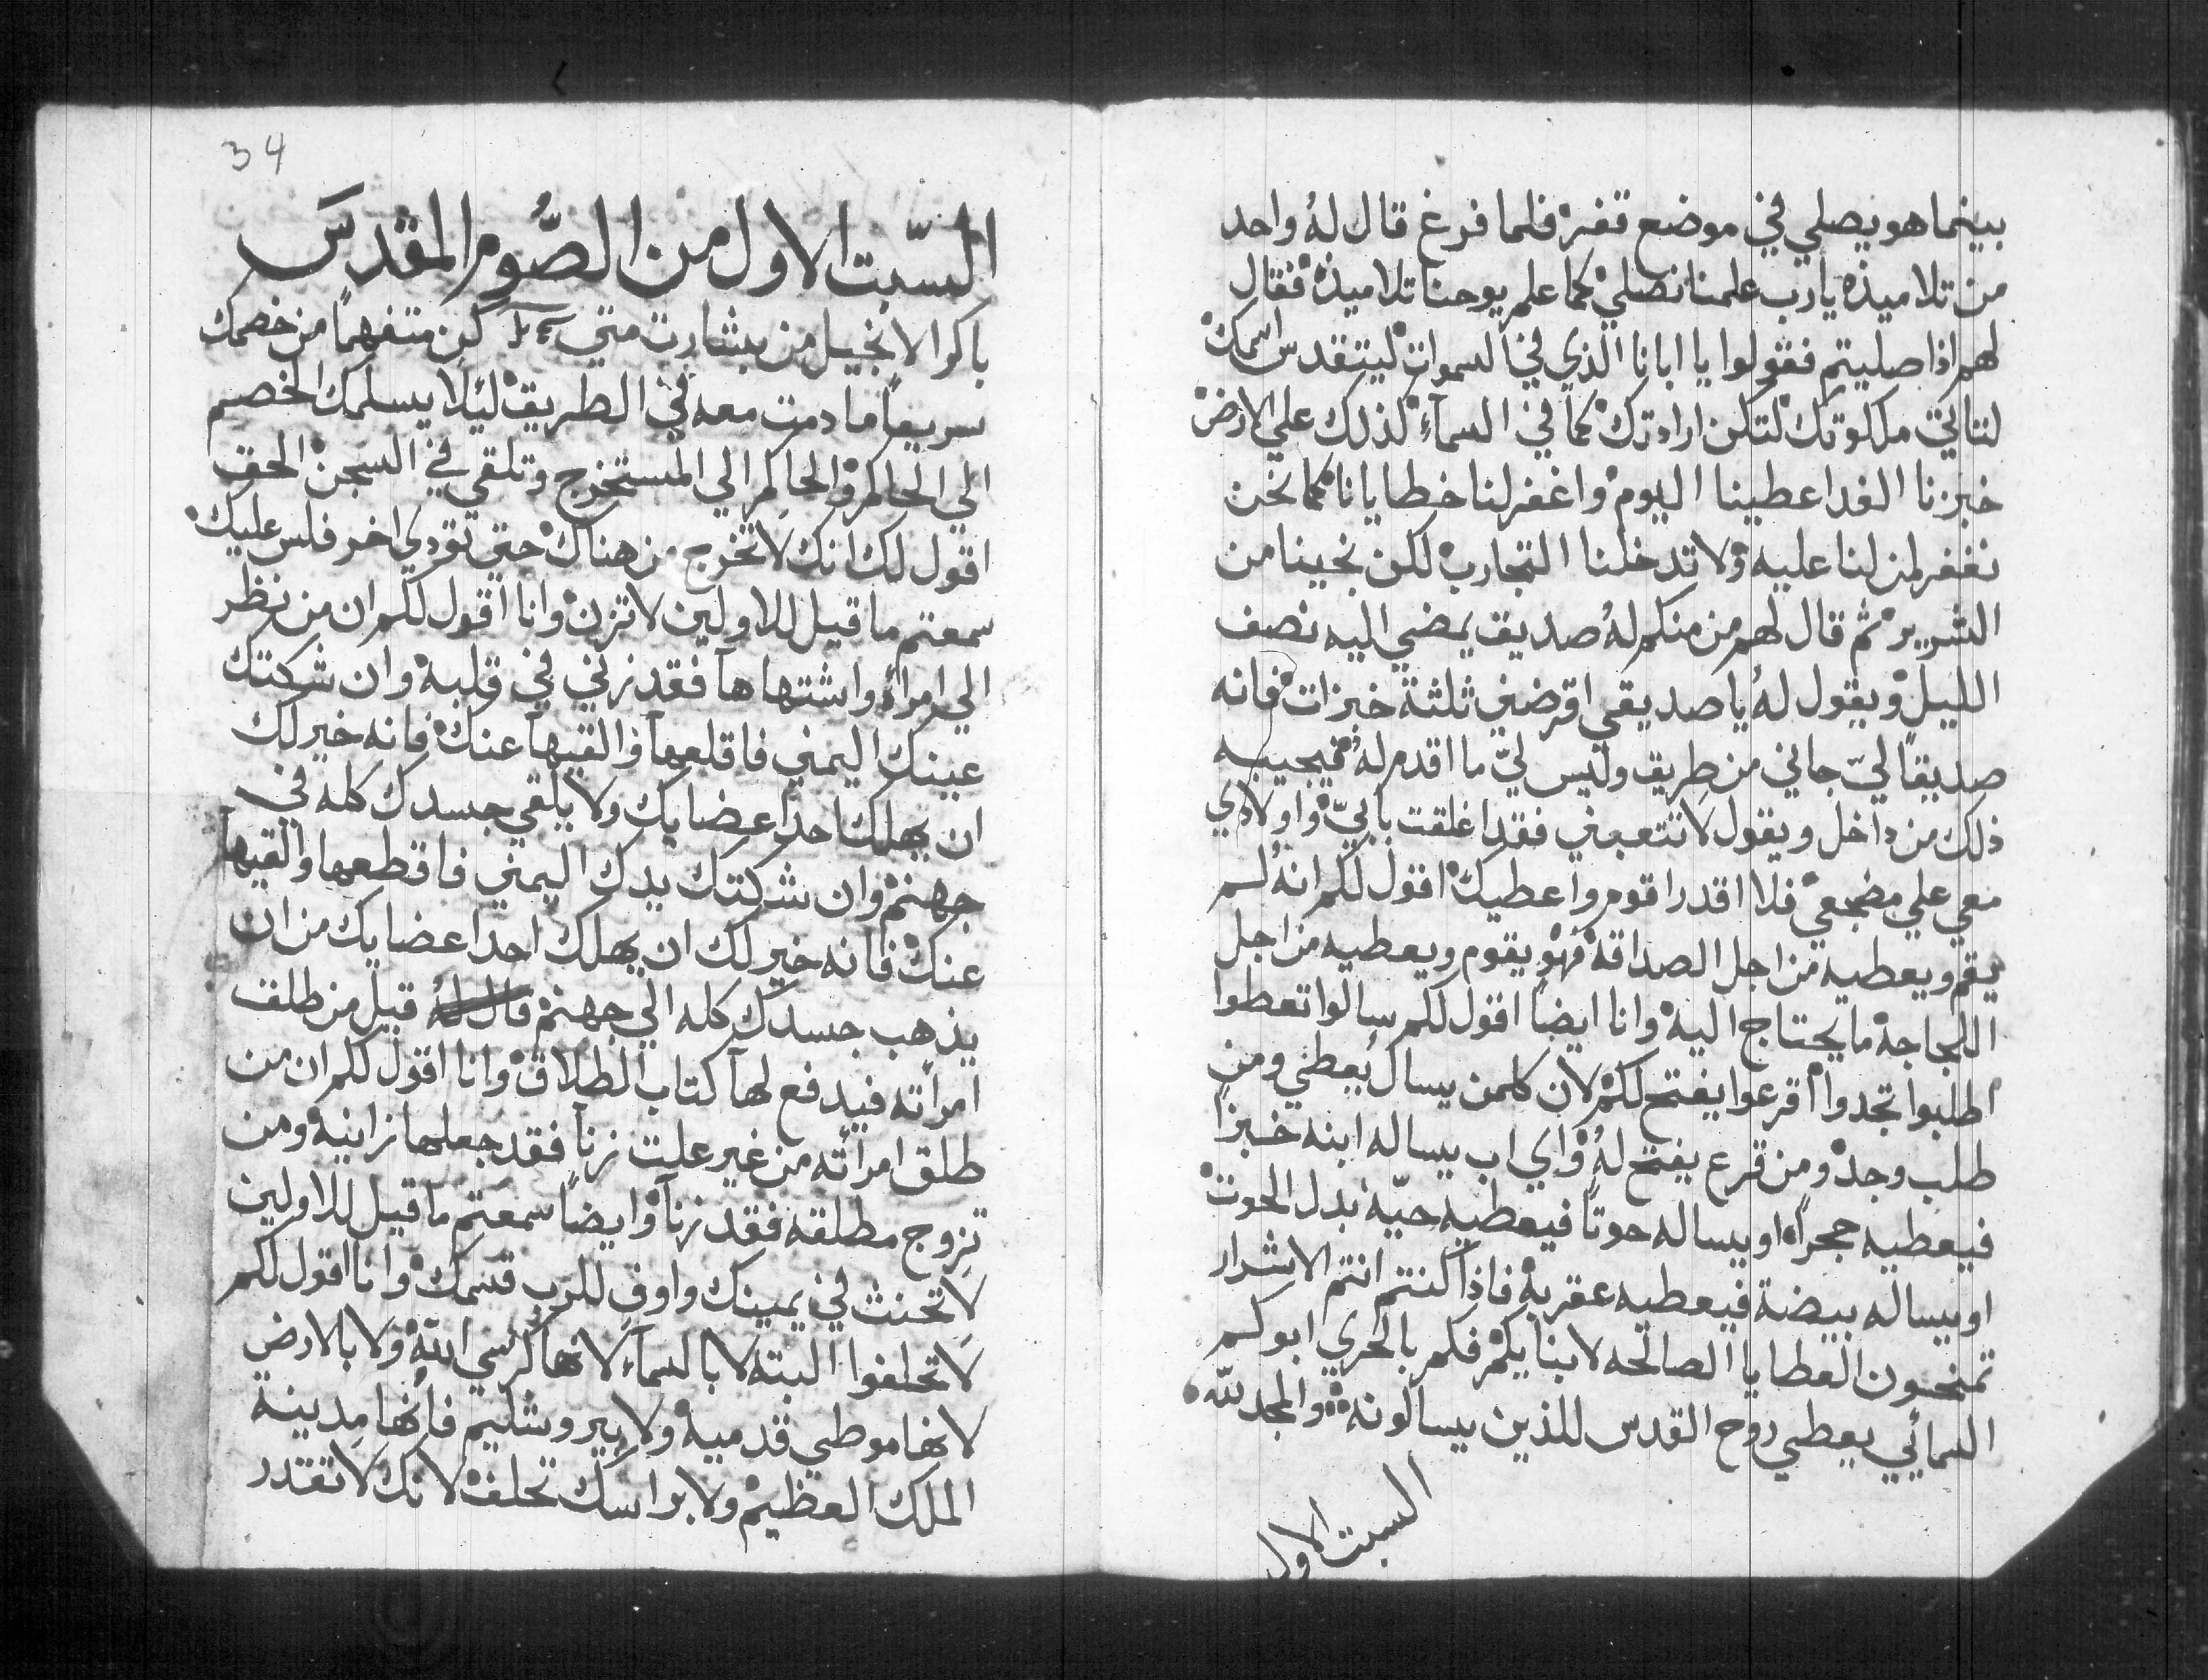 بينما هو يصلي في موضع قفر فلما فرغ قال له واحد
من تلاميذه يا رب علمنا نصلي كما علم يوحنا تلاميذه فقال
لهم اذا صليتم فقولوا يا ابانا الذي في السموات ليتقدس اسمك
لتاتي ملكوتك لتكن ارادتك كما في السمآء كذلك علي الارض
خبزنا الغد اعطينا اليوم واغفر لنا خطايانا كما نحن
نغفر لمن لنا عليه ولا تدخلنا التجارب لكن نجينا من
الشرير ثم قال لهم من منكم لهُ صديق يمضي اليه نصف
الليل ويقول لهُ يا صديقي اقرضني ثلثة خبزات فانه
صديقًا ليّ جاني من طريق وليس ليّ ما اقدم لهُ فيجيبه
ذلك من داخل ويقول لا تتعبني فقد اغلقت بابيّ واولادي
معي علي مضجعي فلا اقدر اقوم واعطيك اقول لكم انه لم
يقم ويعطيه من اجل الصداقة فهو يقوم ويعطيه من اجل
اللجاجة ما يحتاج اليه وانا ايضًا اقول لكم سالوا تعطوا
اطلبوا تجدوا اقرعوا يفتح لكم لان كلمن يسال يُعطي ومن
طلب وجد ومن قرع يفتح لهُ واي اب يساله ابنه خبزًا
فيعطيه حجرًا او يساله حوتًا فيعطيه حيّة بدل الحوت
او يساله بيضة فيعطيه عقربة فاذا كنتم انتم الاشرار
تمنحون العطايا الصالحه لابنايكم فكم بالحري ابوكم
السمائي يعطي روح القدس للذين يسالونه والمجد لله
السبت الاول
34
السّبت الاول من الصُّوم المقدسَ
باكر الانجيل من بشارت متي كن متفهمًا من خصمك
سريعاً ما دمت معه في الطريق ليلا يسلمك الخصم
الي الحاكم والحاكم الي المستخرج وتلقي في السجن الحق
اقول لك انك لا تخرج من هناك حتي تؤدي اخر فلس عليك
سمعتم ما قيل للاولين لا تزن وانا اقول لكم ان من نظر
الي امراة واشتهاها فقد زني في قلبه وان شكتك
عينك اليمني فاقلعها والقيها عنك فانه خير لك
ان يهلك احد اعضايك ولا يلقي جسدك كله في
جهنم وان شكتك يدك اليمني فاقطعها والقيها
عنك فانه خير لك ان يهلك احد اعضايك من ان
يذهب جسدك كله الي جهنم قال له قيل من طلق
امراته فيدفع لهآ كتاب الطلاق وانا اقول لكم ان من
طلق امراته من غير علت زنآ فقد جعلها زانية ومن
تزوج مطلقه فقد زنآ وايضاً سمعتم ما قيل للاولين
لا تحنث في يمينك واوفِ للرب قسمك وانا اقول لكم
لا تحلفوا البته لا بالسمآء لانها كرسي الله ولا بالارض
لانها موطي قدميه ولا بيروشليم فانها مدينة
الملك العظيم ولا براسك تحلف لانك لا تقتدر